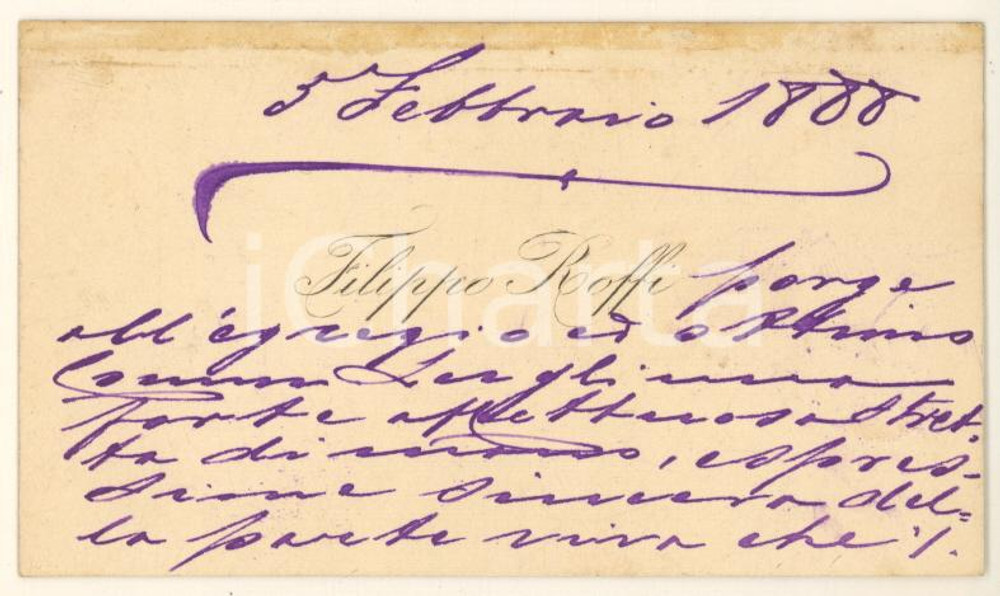 5 Febbraio 1888
Filippo Roffi porge
all'egregio ed ottimo
Comm. una
forte affettuosa stret-
ta di mano, espres-
sione sincera del-
la parte viva che ./.
iCharta